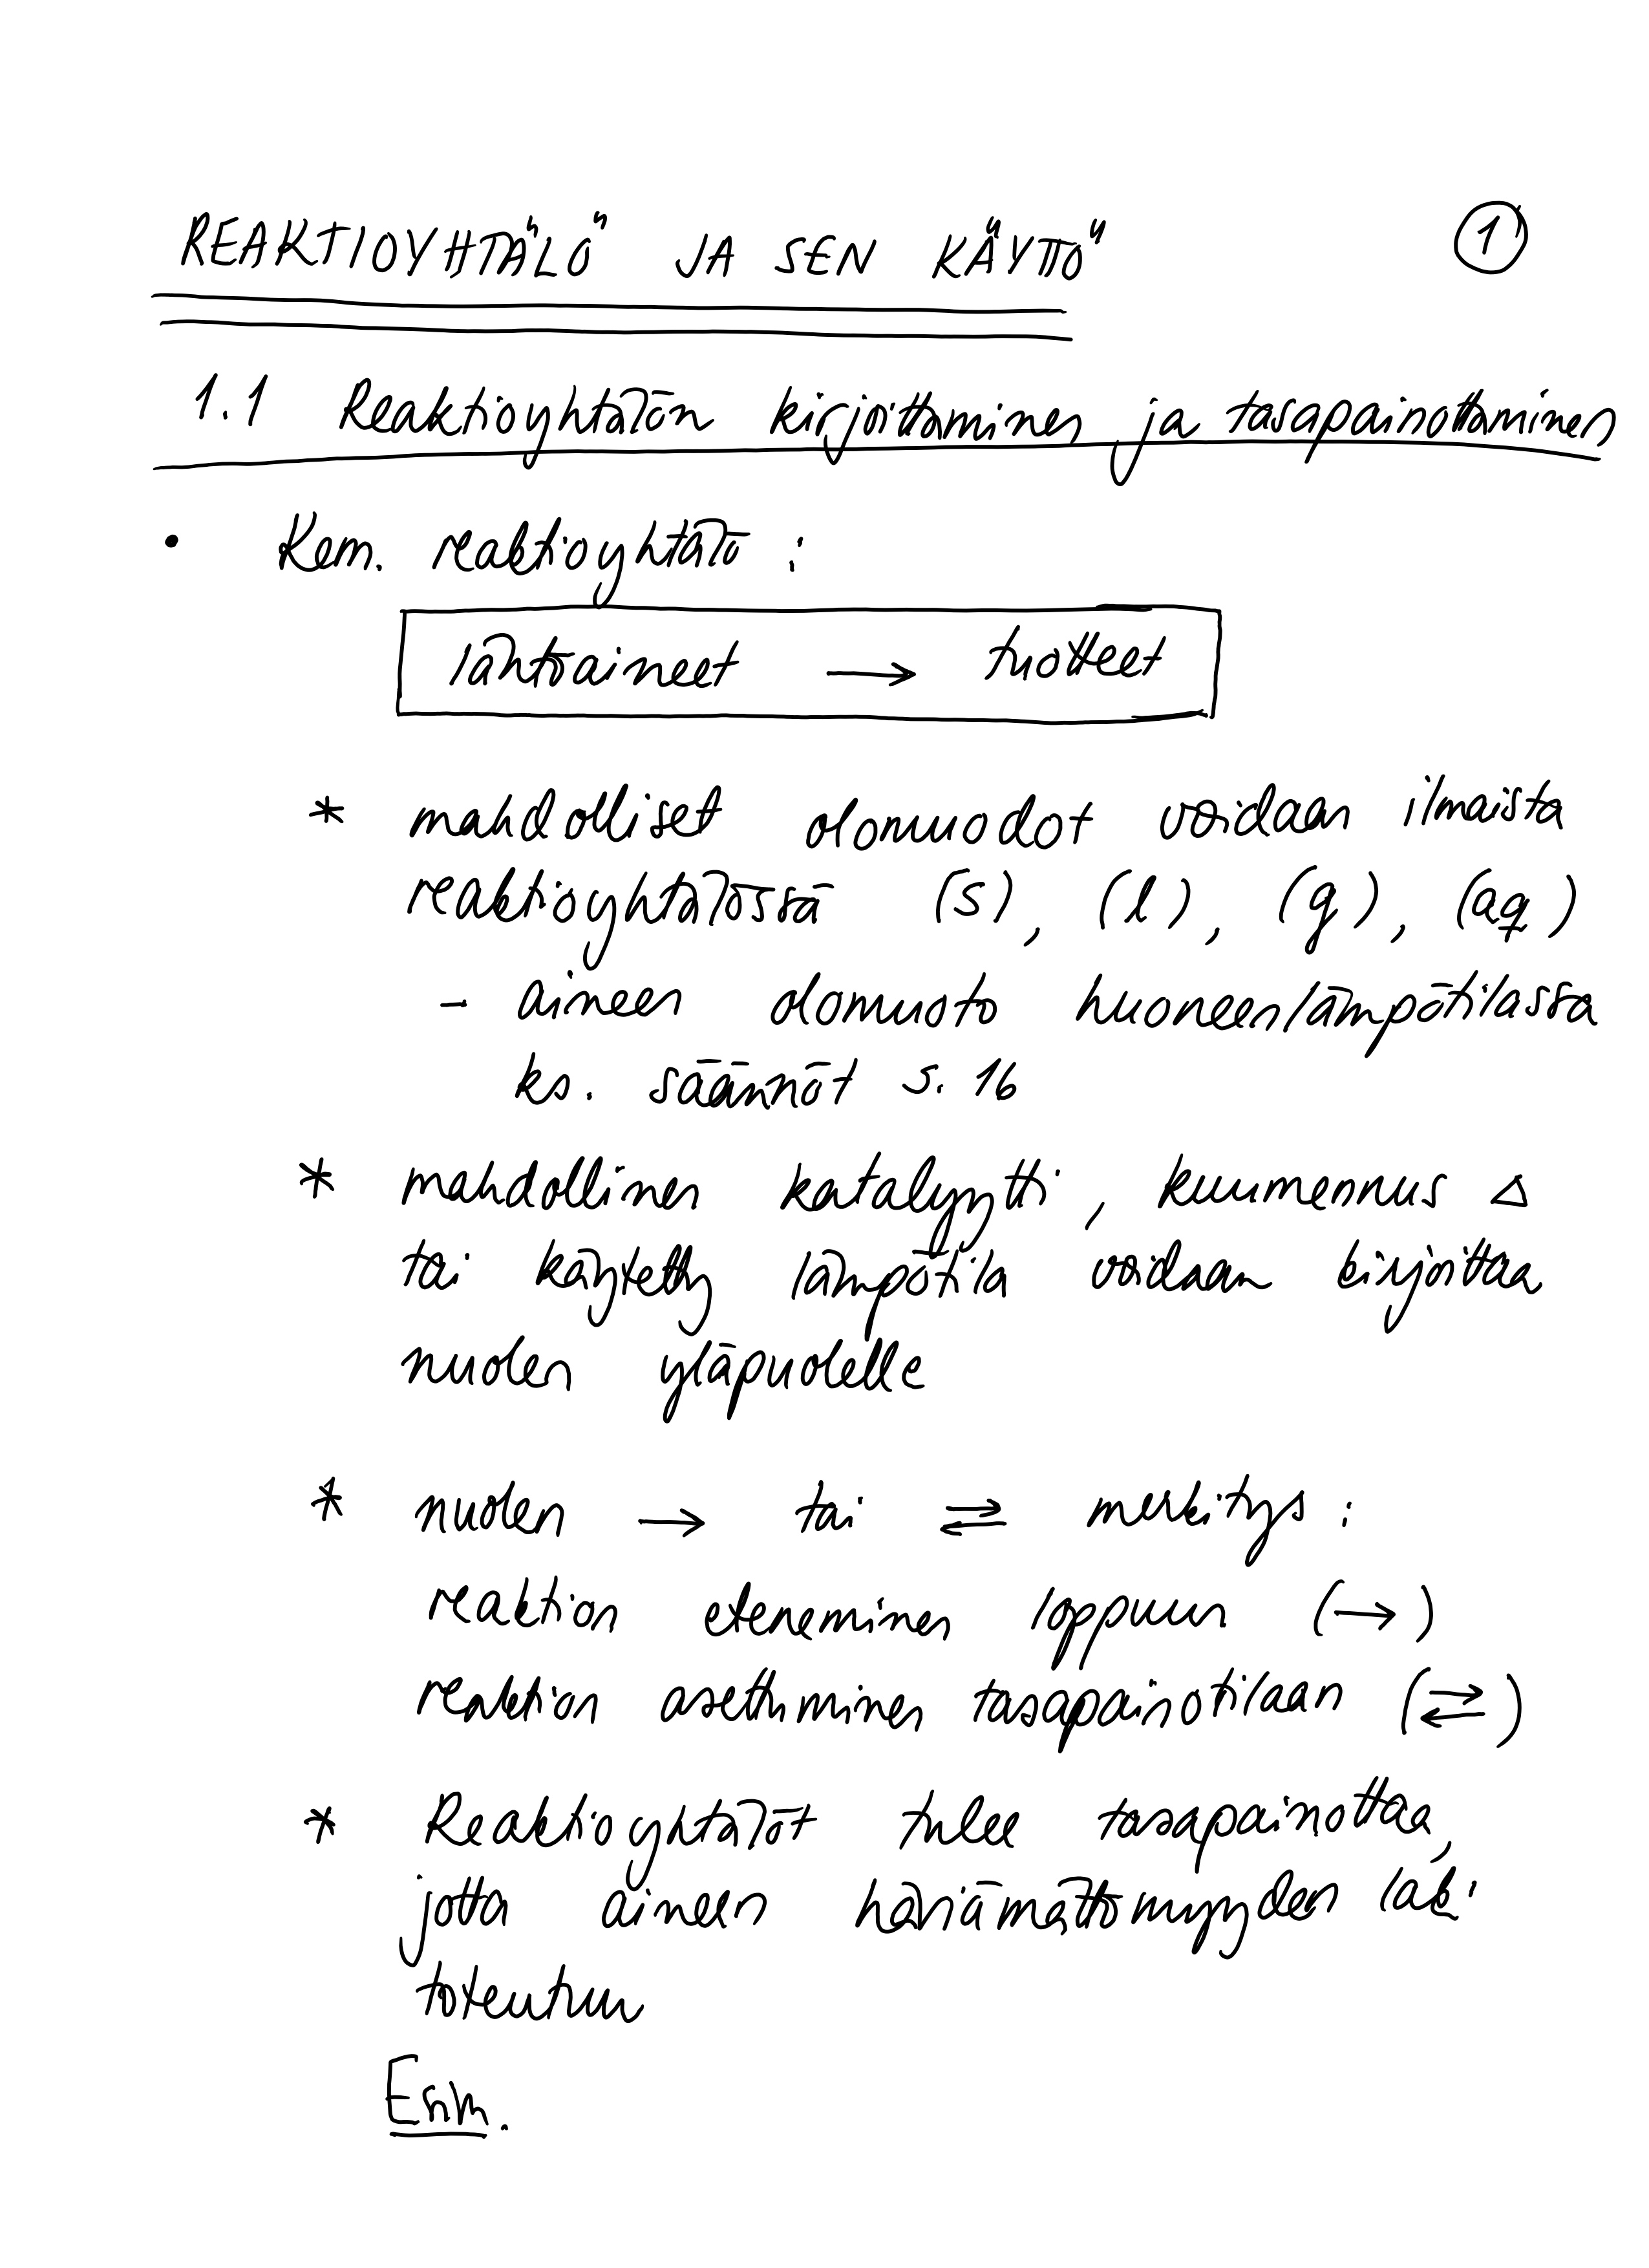 REAKTIOYHTÄLÖ JA SEN KÄYTTÖ 1
1.1 Reaktioyhtälön kirjoittaminen ja tasapainottaminen
• Kem. reaktioyhtälö :
lähtöaineet → tuotteet
* mahdolliset olomuodot voidaan ilmaista
reaktioyhtälössä (s), (l), (g), (aq)
- aineen olomuoto huoneenlämpötilassa
ks. säännöt s. 16
* mahdollinen katalyytti, kuumennus △
tai käytetty lämpötila voidaan kirjoittaa
nuolen yläpuolelle
* nuolen → tai ⇌ merkitys :
reaktion eteneminen loppuun (→)
reaktion asettuminen tasapainotilaan (⇌)
* Reaktioyhtälöt tulee tasapainottaa,
jotta aineen häviämättömyyden laki
toteutuu
Esim.